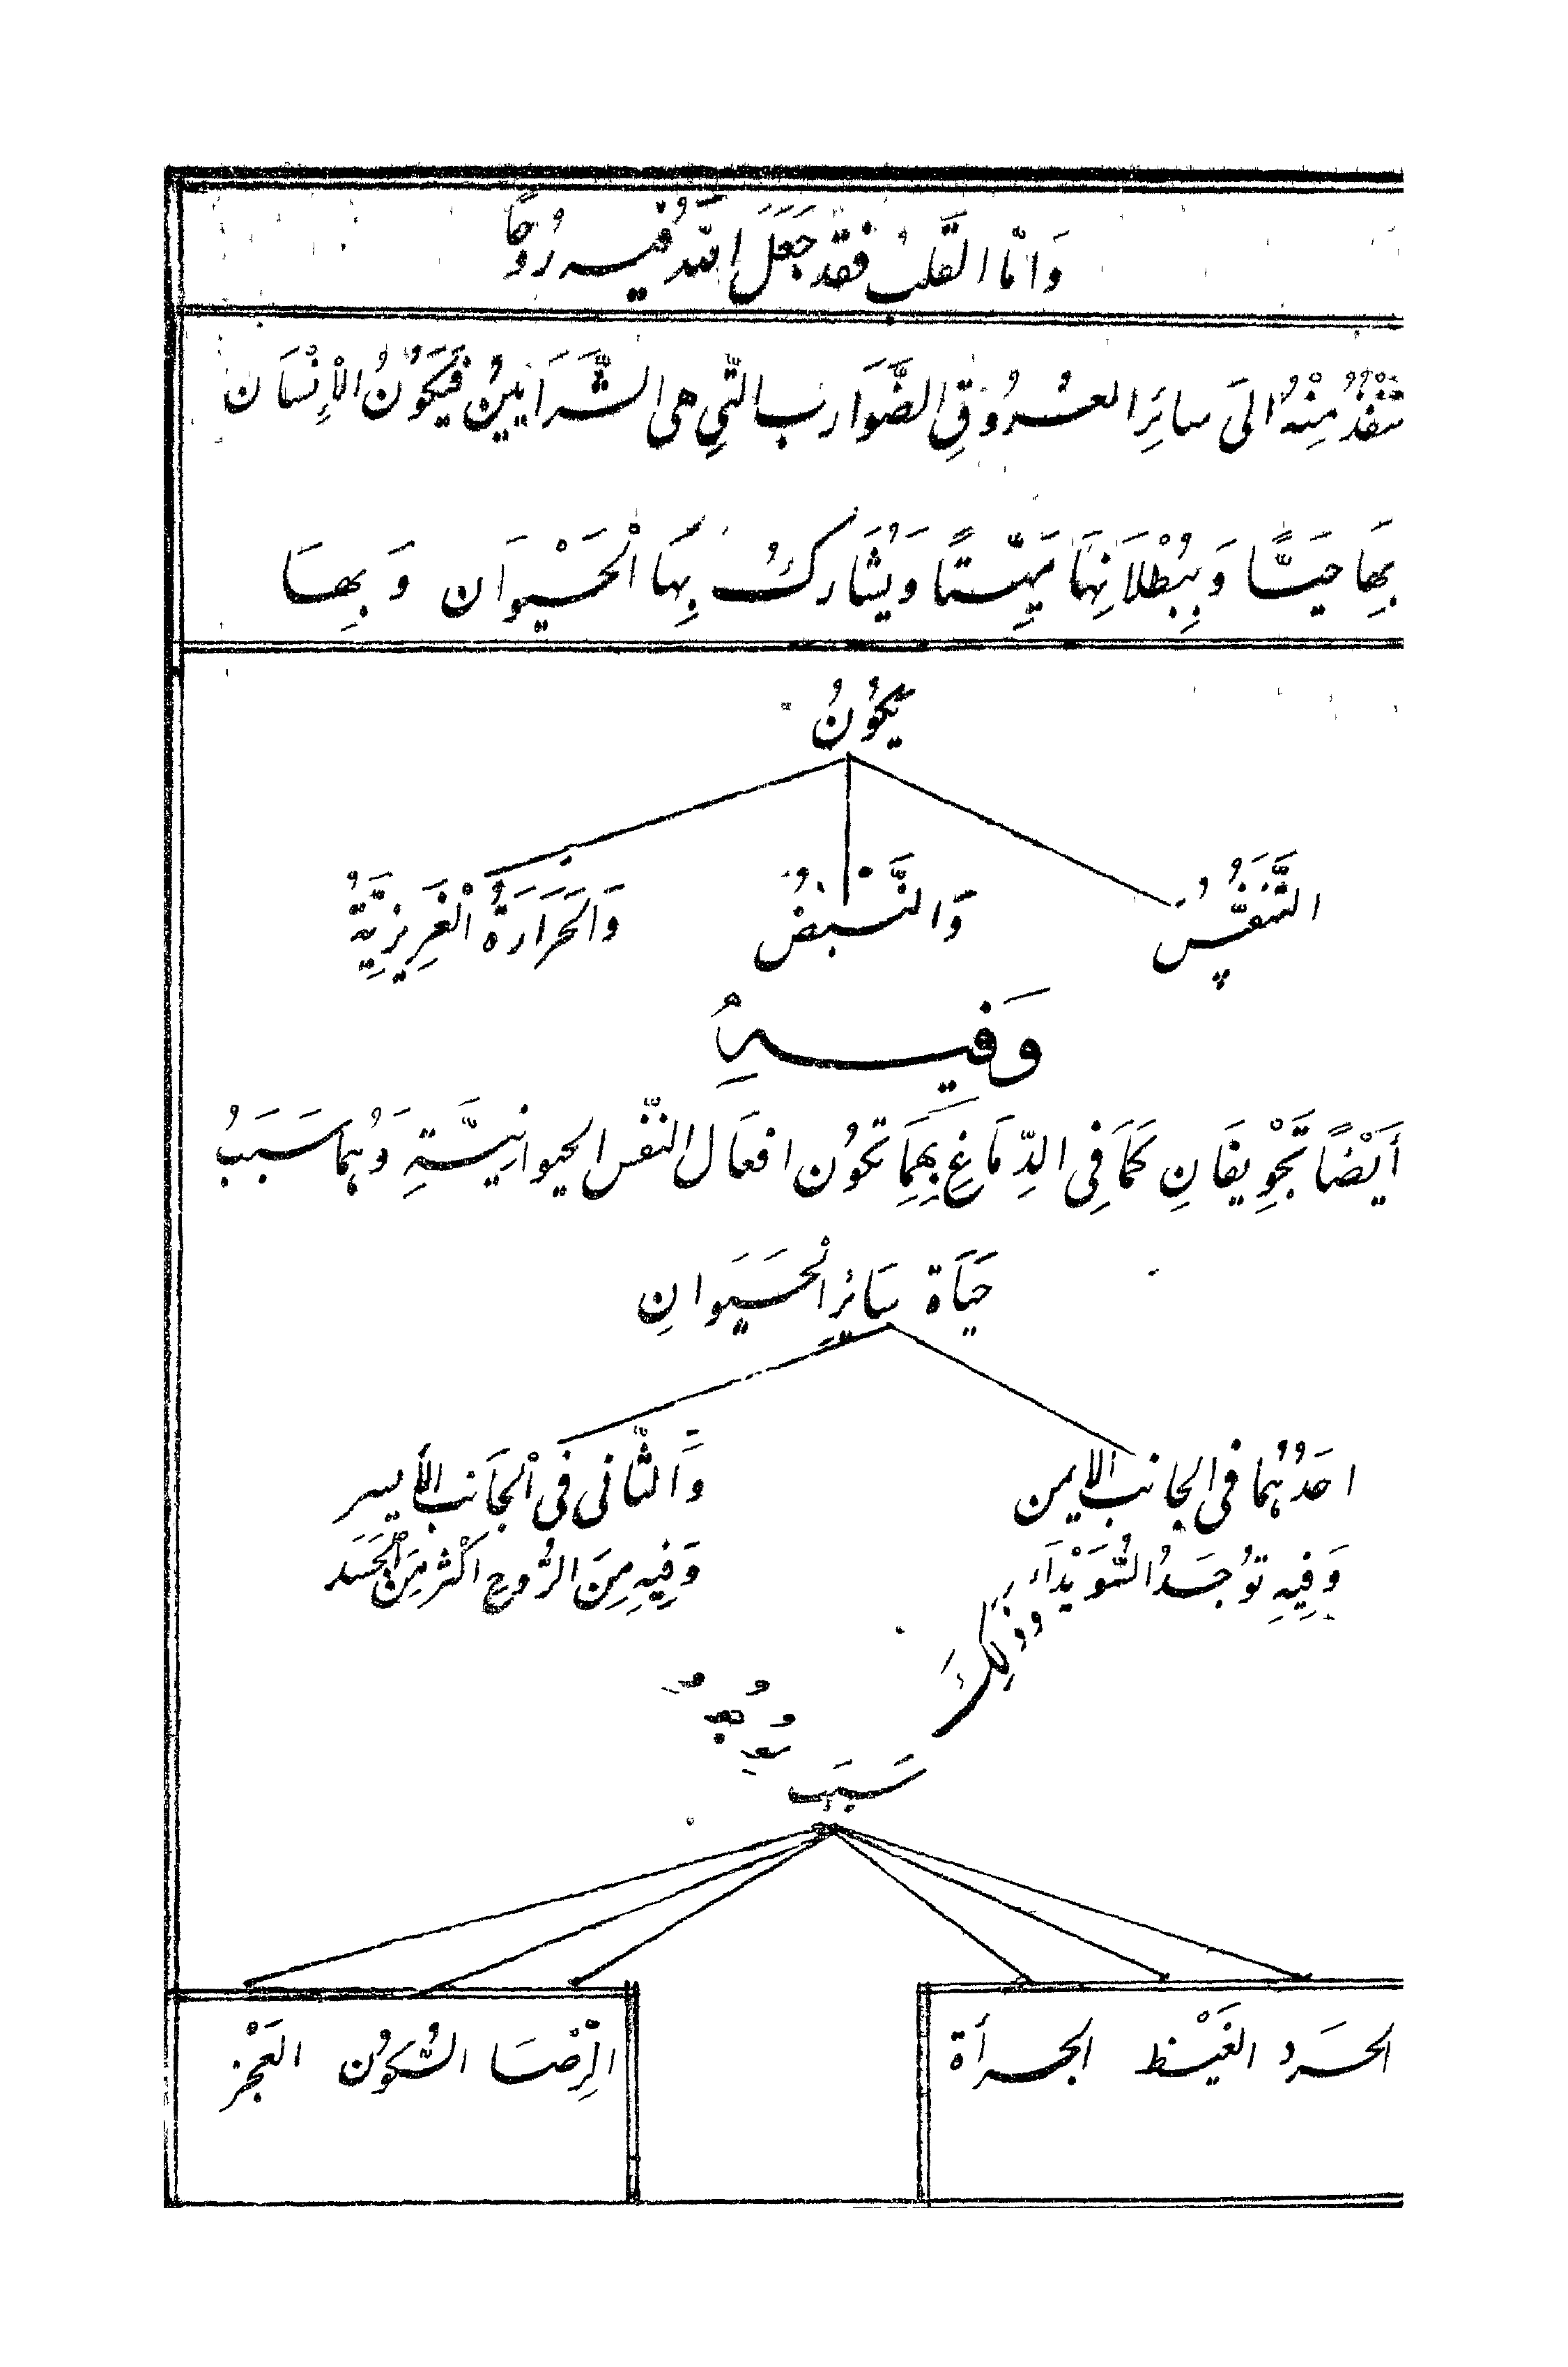 وَامّا القَلبُ فقد جَعَلَ اللَّهُ فيه رُوحًا
تَنْفُذُ مِنْهُ الىَ سائِرِ العُرُوقِ الضَّوَارب التّي هي الشَّرَايينُ فَيَكُونُ الإِنْسَان
بِهَا حيًّا وَبِبُطْلَانِهَا مَيّتًا وَيُشَارِكُ بِهَا الْحَيْوَان وَبِهَا
يَكُونُ
التَّنَفُّسُ وَالنَّبْضُ وَالحَرَارَةُ الْغَرِيزِيَّةُ
وَفيهِ
أَيْضًا تَجْوِيفَانِ كَمَا فِي الدِّمَاغِ بِهِمَا تَكُون افعَال النّفس الحيوانِيَّةِ وَهُمَا سَبَبُ
حَيَاة سَائِرِ الْحَيَوانِ
احَدُهُمَا في الجانب الايمن وَالثّاني في الْجَانِب الأيسر
وَفِيهِ تُوجَدُ السُّوَيْدَاء وَفِيهِ مِنَ الرُّوحِ اكْثر مِنَ الْجَسَد
وَذٰلِكَ
سَبَب
الحرَد الغَيْظ الجرأة الرِّضَا السُّكُون العَجْز